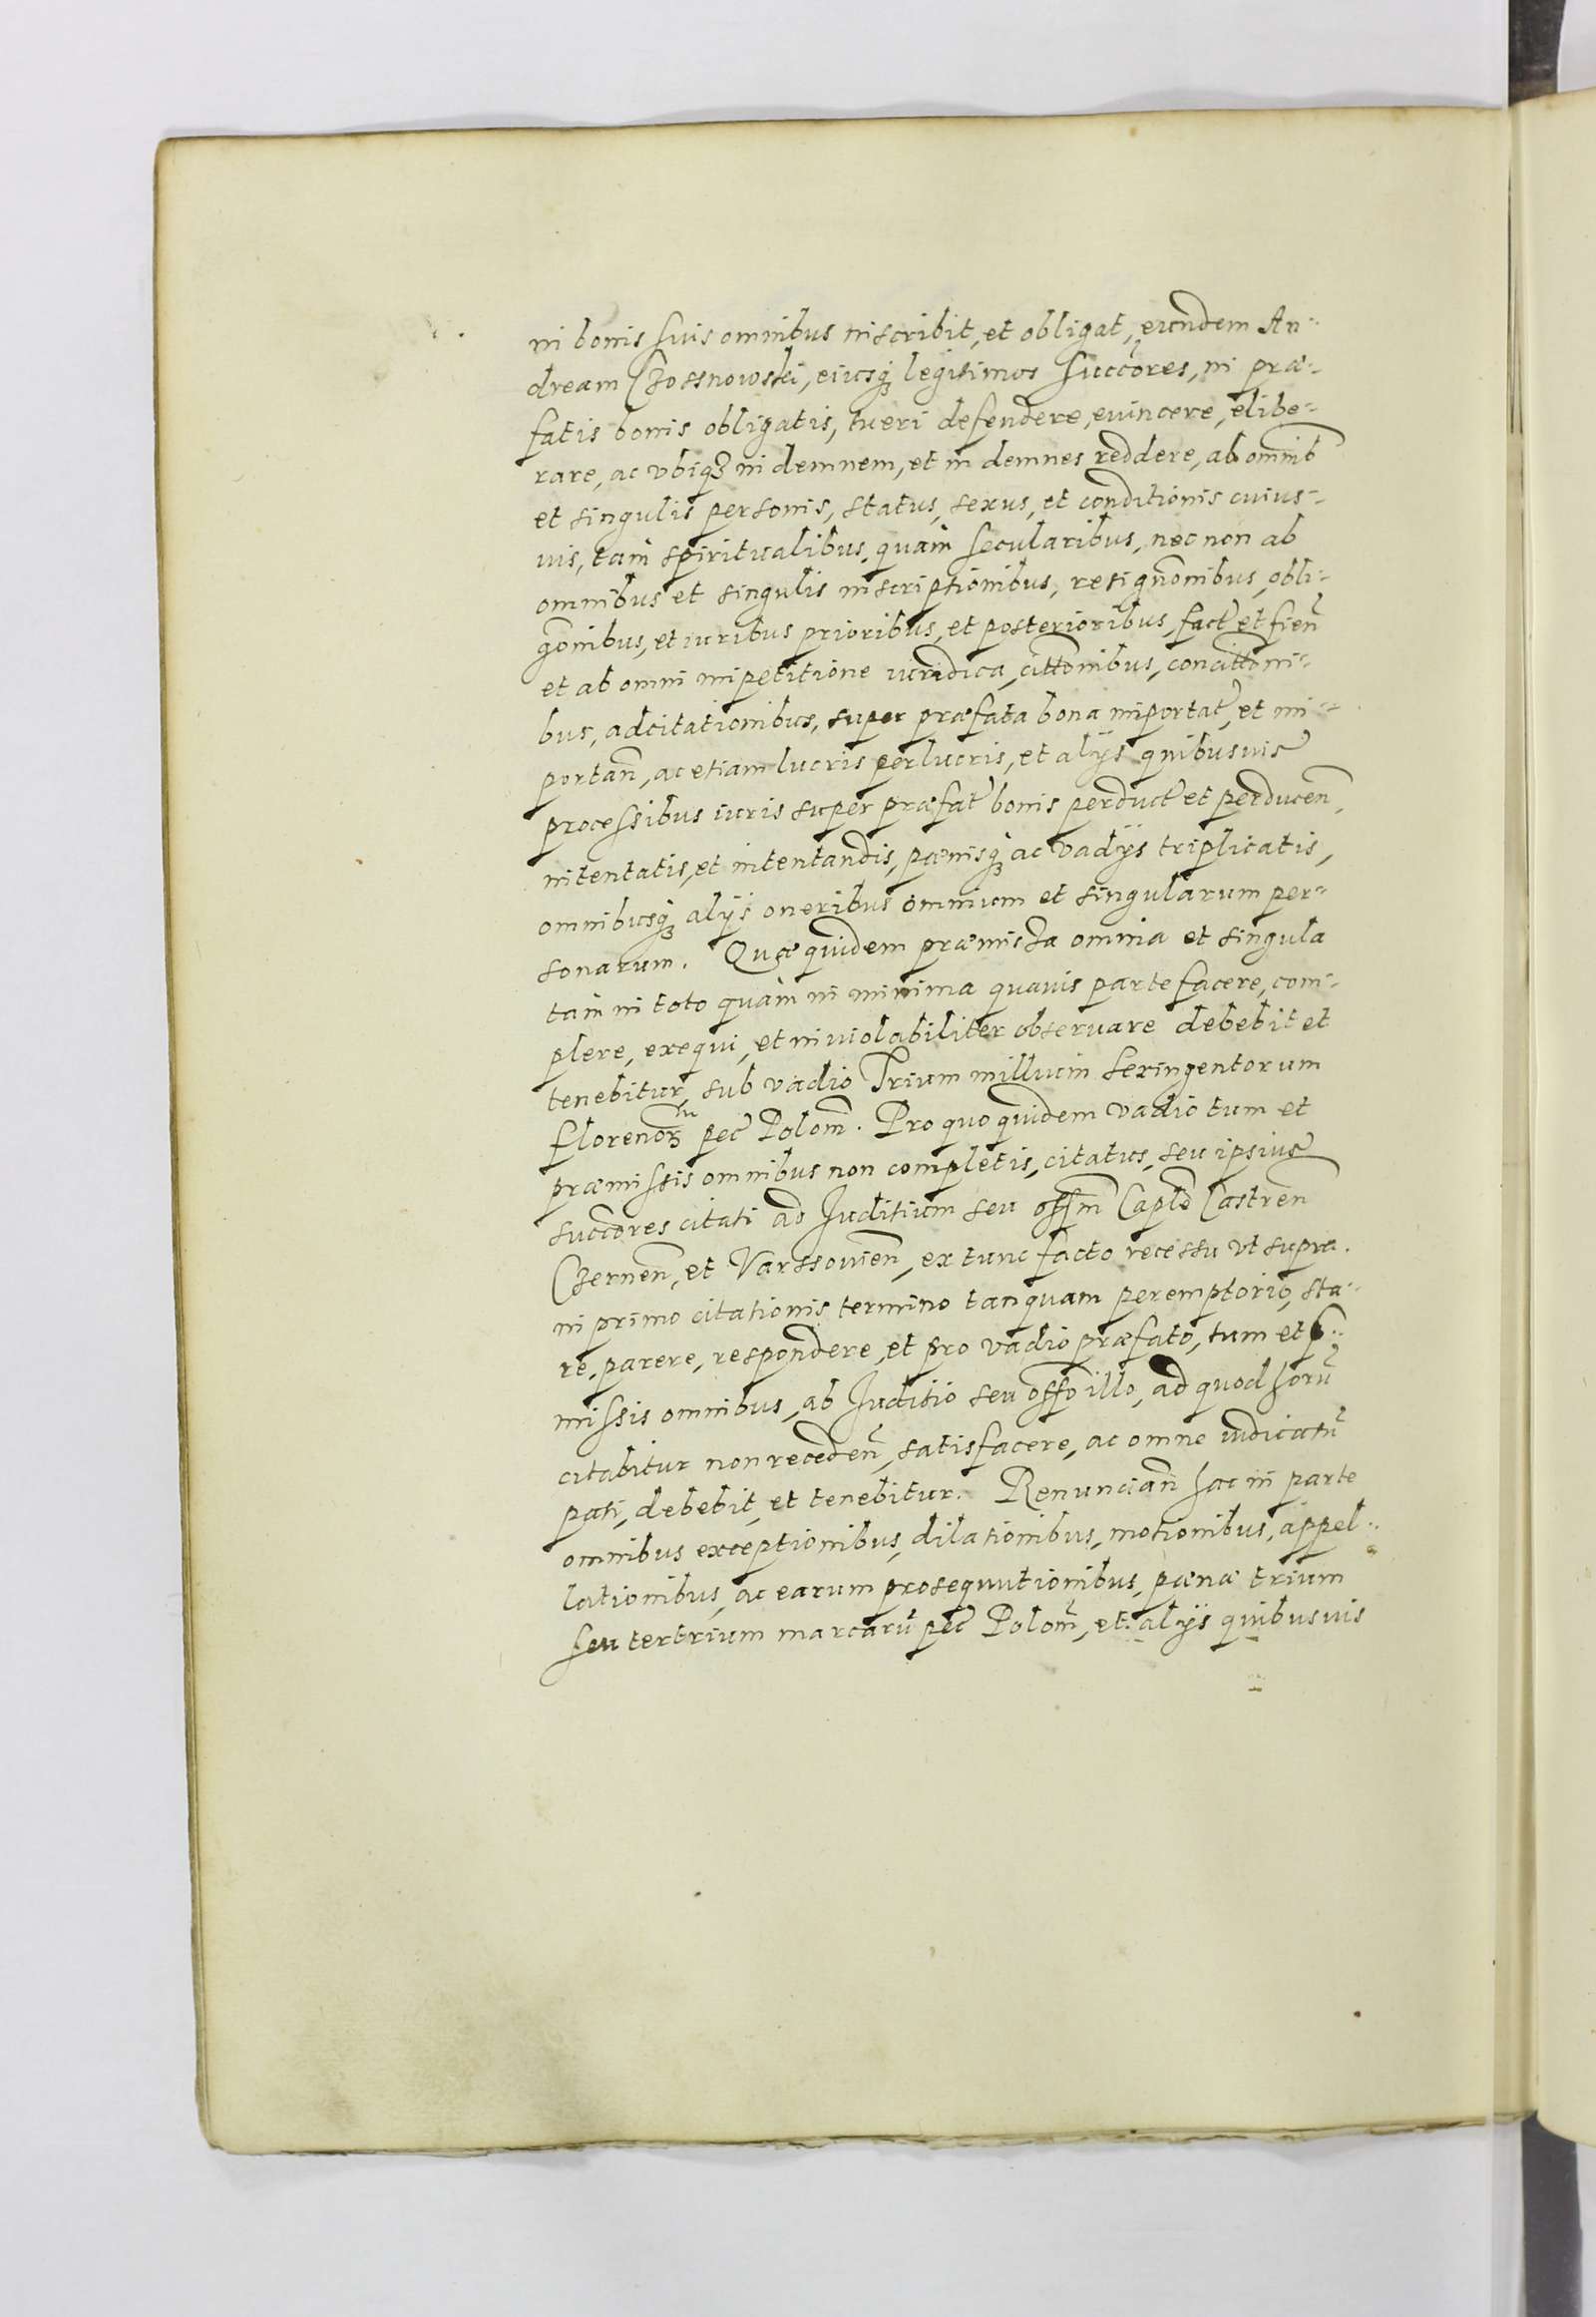 in bonis suis omnibus inscribit, et obligat, eundem An-
dream Czossnowski, eiusq₃ legitimos succōres, in præ-
fatis bonis obligatis, tueri defendere, euincere, elibe-
rare, ac vbiq₃ in demnem, et in demnes reddere, ab omnib
et singulis personis, status, sexus, et conditionis cuius-
uis, tam spiritualibus, quàm secularibus, nec non ab
omnibus et singulis inscriptionibus, resignōnibus, obli-
gōnibus, et iuribus prioribus, et posterioribus, fact et fień
et ab omni impetitione iuridica, cittōnibus, concittōni-
bus, adcitationibus, super præfata bona importat, et im-
portań, ac etiam lucris perlucris, et alijs quibusuis
processibus iuris super præfat bonis perduct et perduceń,
intentatis, et intentandis, pænisq₃ ac vadijs triplicatis,
omnibusq₃ alijs oneribus omnium et singularum per-
sonarum. Quæ quidem præmissa omnia et singula
tàm in toto quàm in minima quauis parte facere, com-
plere, exequi, et inuiolabiliter obseruare debebit et
tenebitur, sub vadio Trium millium sexingentorum
florenor₃ pec Polom̄. Pro quo quidem vadio tum et
præmissis omnibus non completis, citatus, seu ipsius
succōres citati ad Juditium seu offm̄ Capłe Castreń
Czerneń, et Varssouień, ex tunc facto recessu vt supra.
in primo citationis termino tanquam peremptorio, sta-
re, parere, respondere, et pro vadio præfato, tum et p-
missis omnibus, ab Juditio seu offō illo, ad quod horū
citabitur non recedeń, satisfacere, ac omne iudicatū
pati, debebit, et tenebitur. Renuncian̄ hac in parte
omnibus exceptionibus, dilationibus, motionibus, appel-
lationibus, ac earum prosequutionibus, pæna trium
seu ter trium marcarū pec Polom̄, et alijs quibusuis